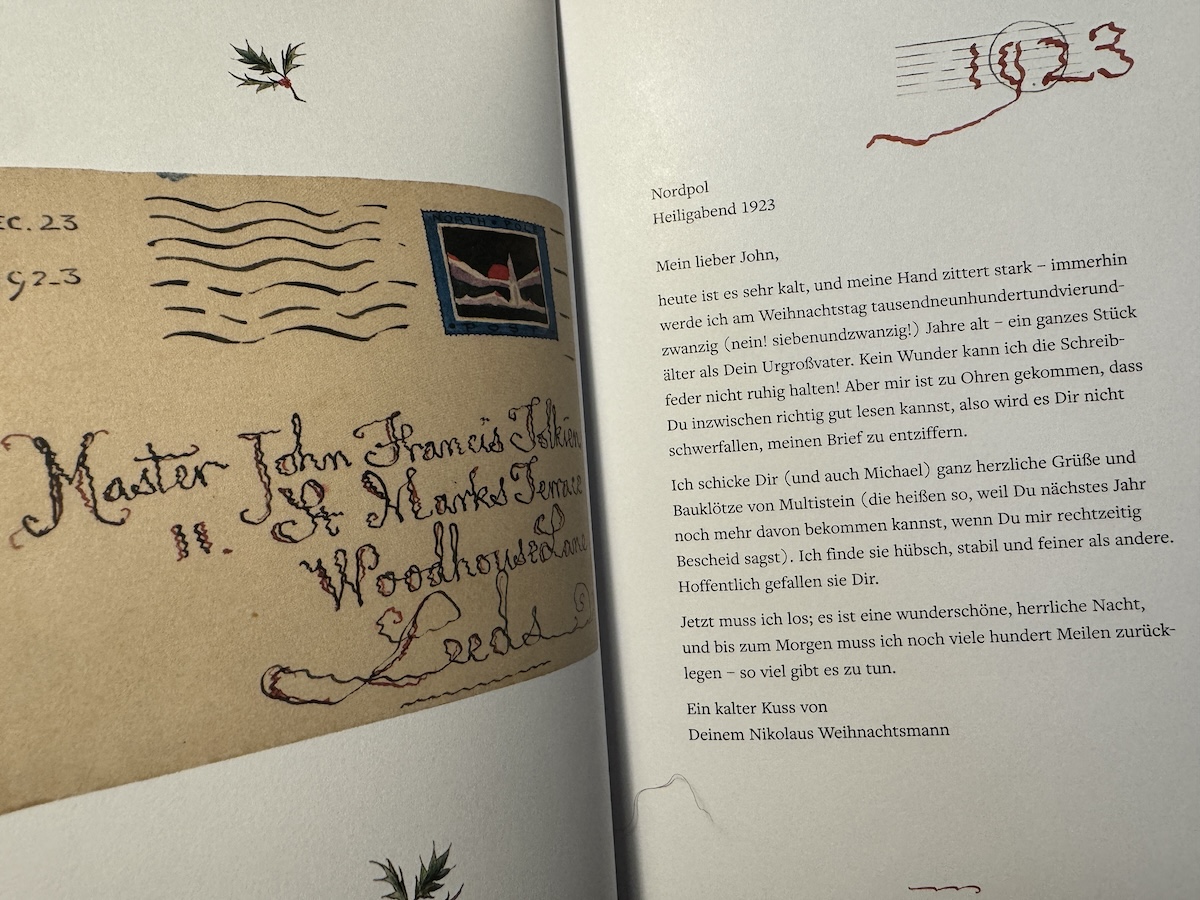 EC. 23
923
NORTH · POLE
· POST ·
Master John Francis Tolkien
11. St Marks Terrace
Woodhouse Lane
Leeds
1923
Nordpol
Heiligabend 1923
Mein lieber John,
heute ist es sehr kalt, und meine Hand zittert stark – immerhin
werde ich am Weihnachtstag tausendneunhundertundvierund-
zwanzig (nein! siebenundzwanzig!) Jahre alt – ein ganzes Stück
älter als Dein Urgroßvater. Kein Wunder kann ich die Schreib-
feder nicht ruhig halten! Aber mir ist zu Ohren gekommen, dass
Du inzwischen richtig gut lesen kannst, also wird es Dir nicht
schwerfallen, meinen Brief zu entziffern.
Ich schicke Dir (und auch Michael) ganz herzliche Grüße und
Bauklötze von Multistein (die heißen so, weil Du nächstes Jahr
noch mehr davon bekommen kannst, wenn Du mir rechtzeitig
Bescheid sagst). Ich finde sie hübsch, stabil und feiner als andere.
Hoffentlich gefallen sie Dir.
Jetzt muss ich los; es ist eine wunderschöne, herrliche Nacht,
und bis zum Morgen muss ich noch viele hundert Meilen zurück-
legen – so viel gibt es zu tun.
Ein kalter Kuss von
Deinem Nikolaus Weihnachtsmann